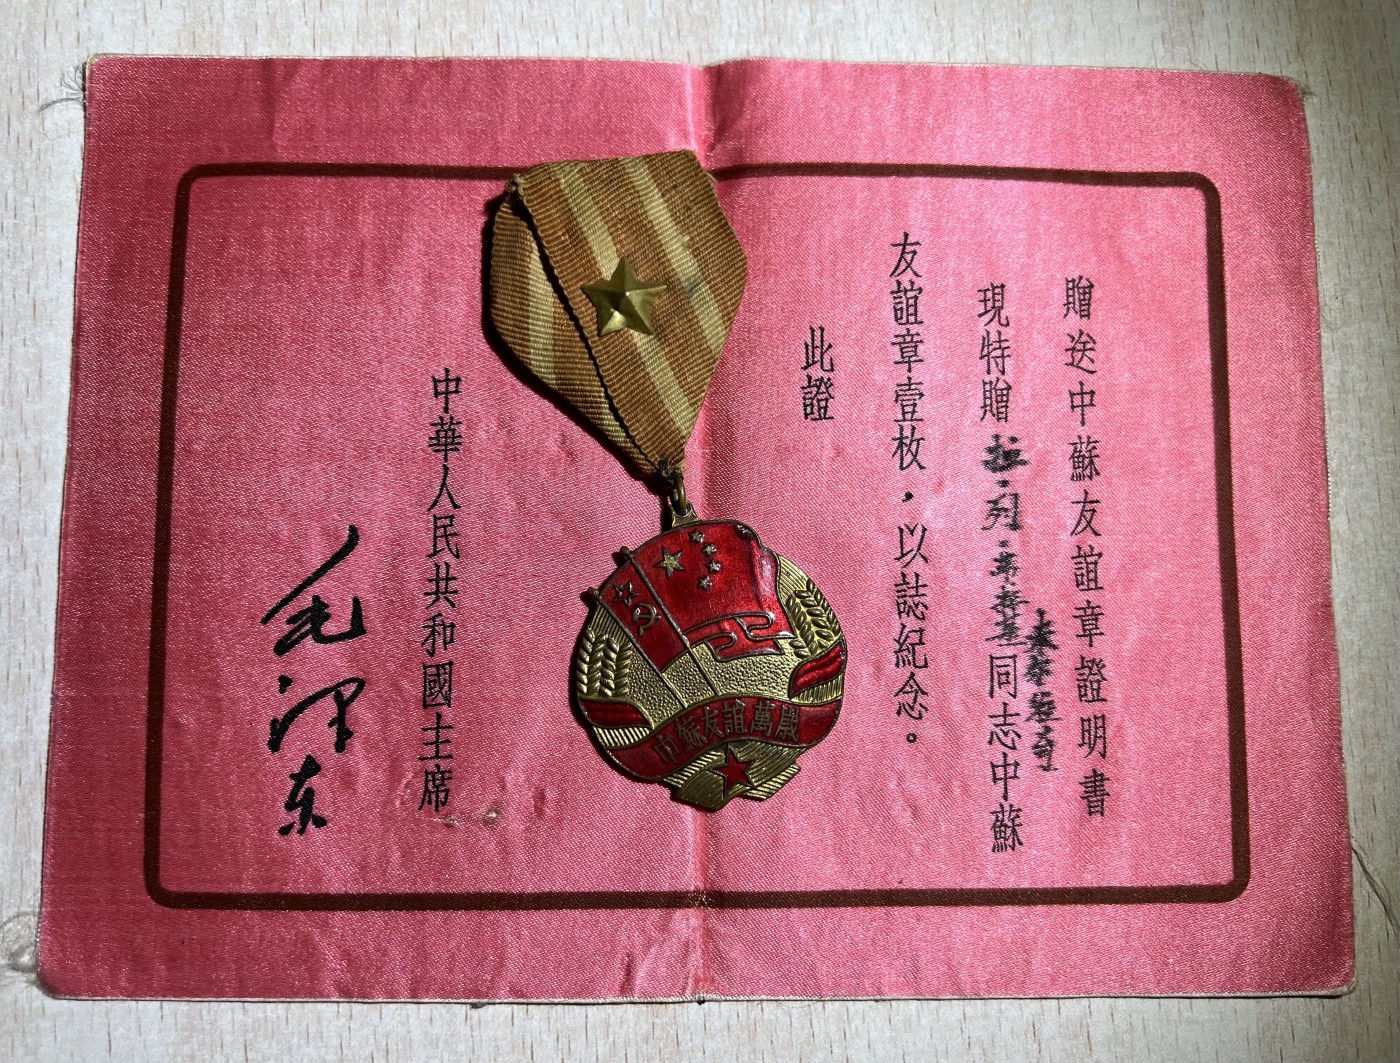 贈送中蘇友誼章證明書
現特贈 拉·列· 同志中蘇
友誼章壹枚，以誌紀念。
此證
中華人民共和國主席
毛澤东
中蘇友誼萬歲